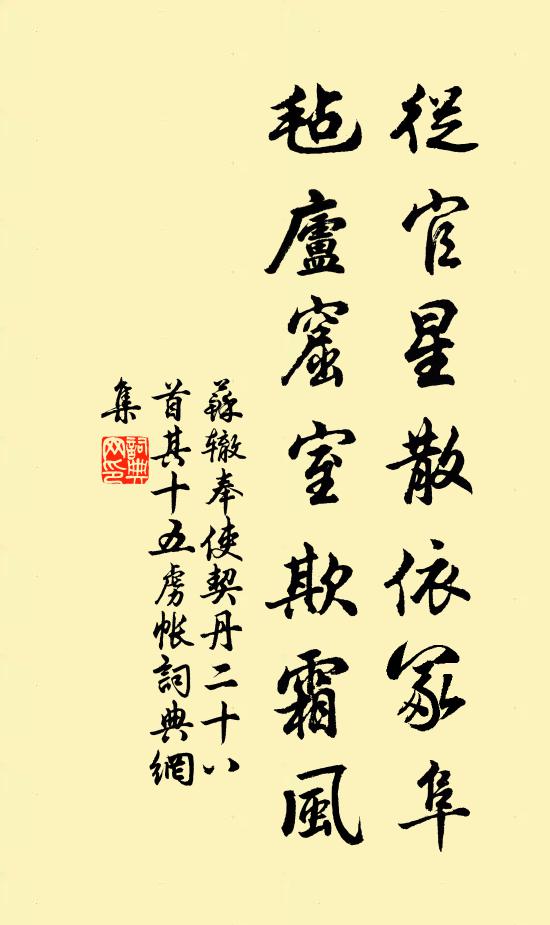 從官星散依冢阜
氊廬窟室欺霜風
蘇轍奉使契丹二十八
首其十五虜帳詞典網
集
詞典网印